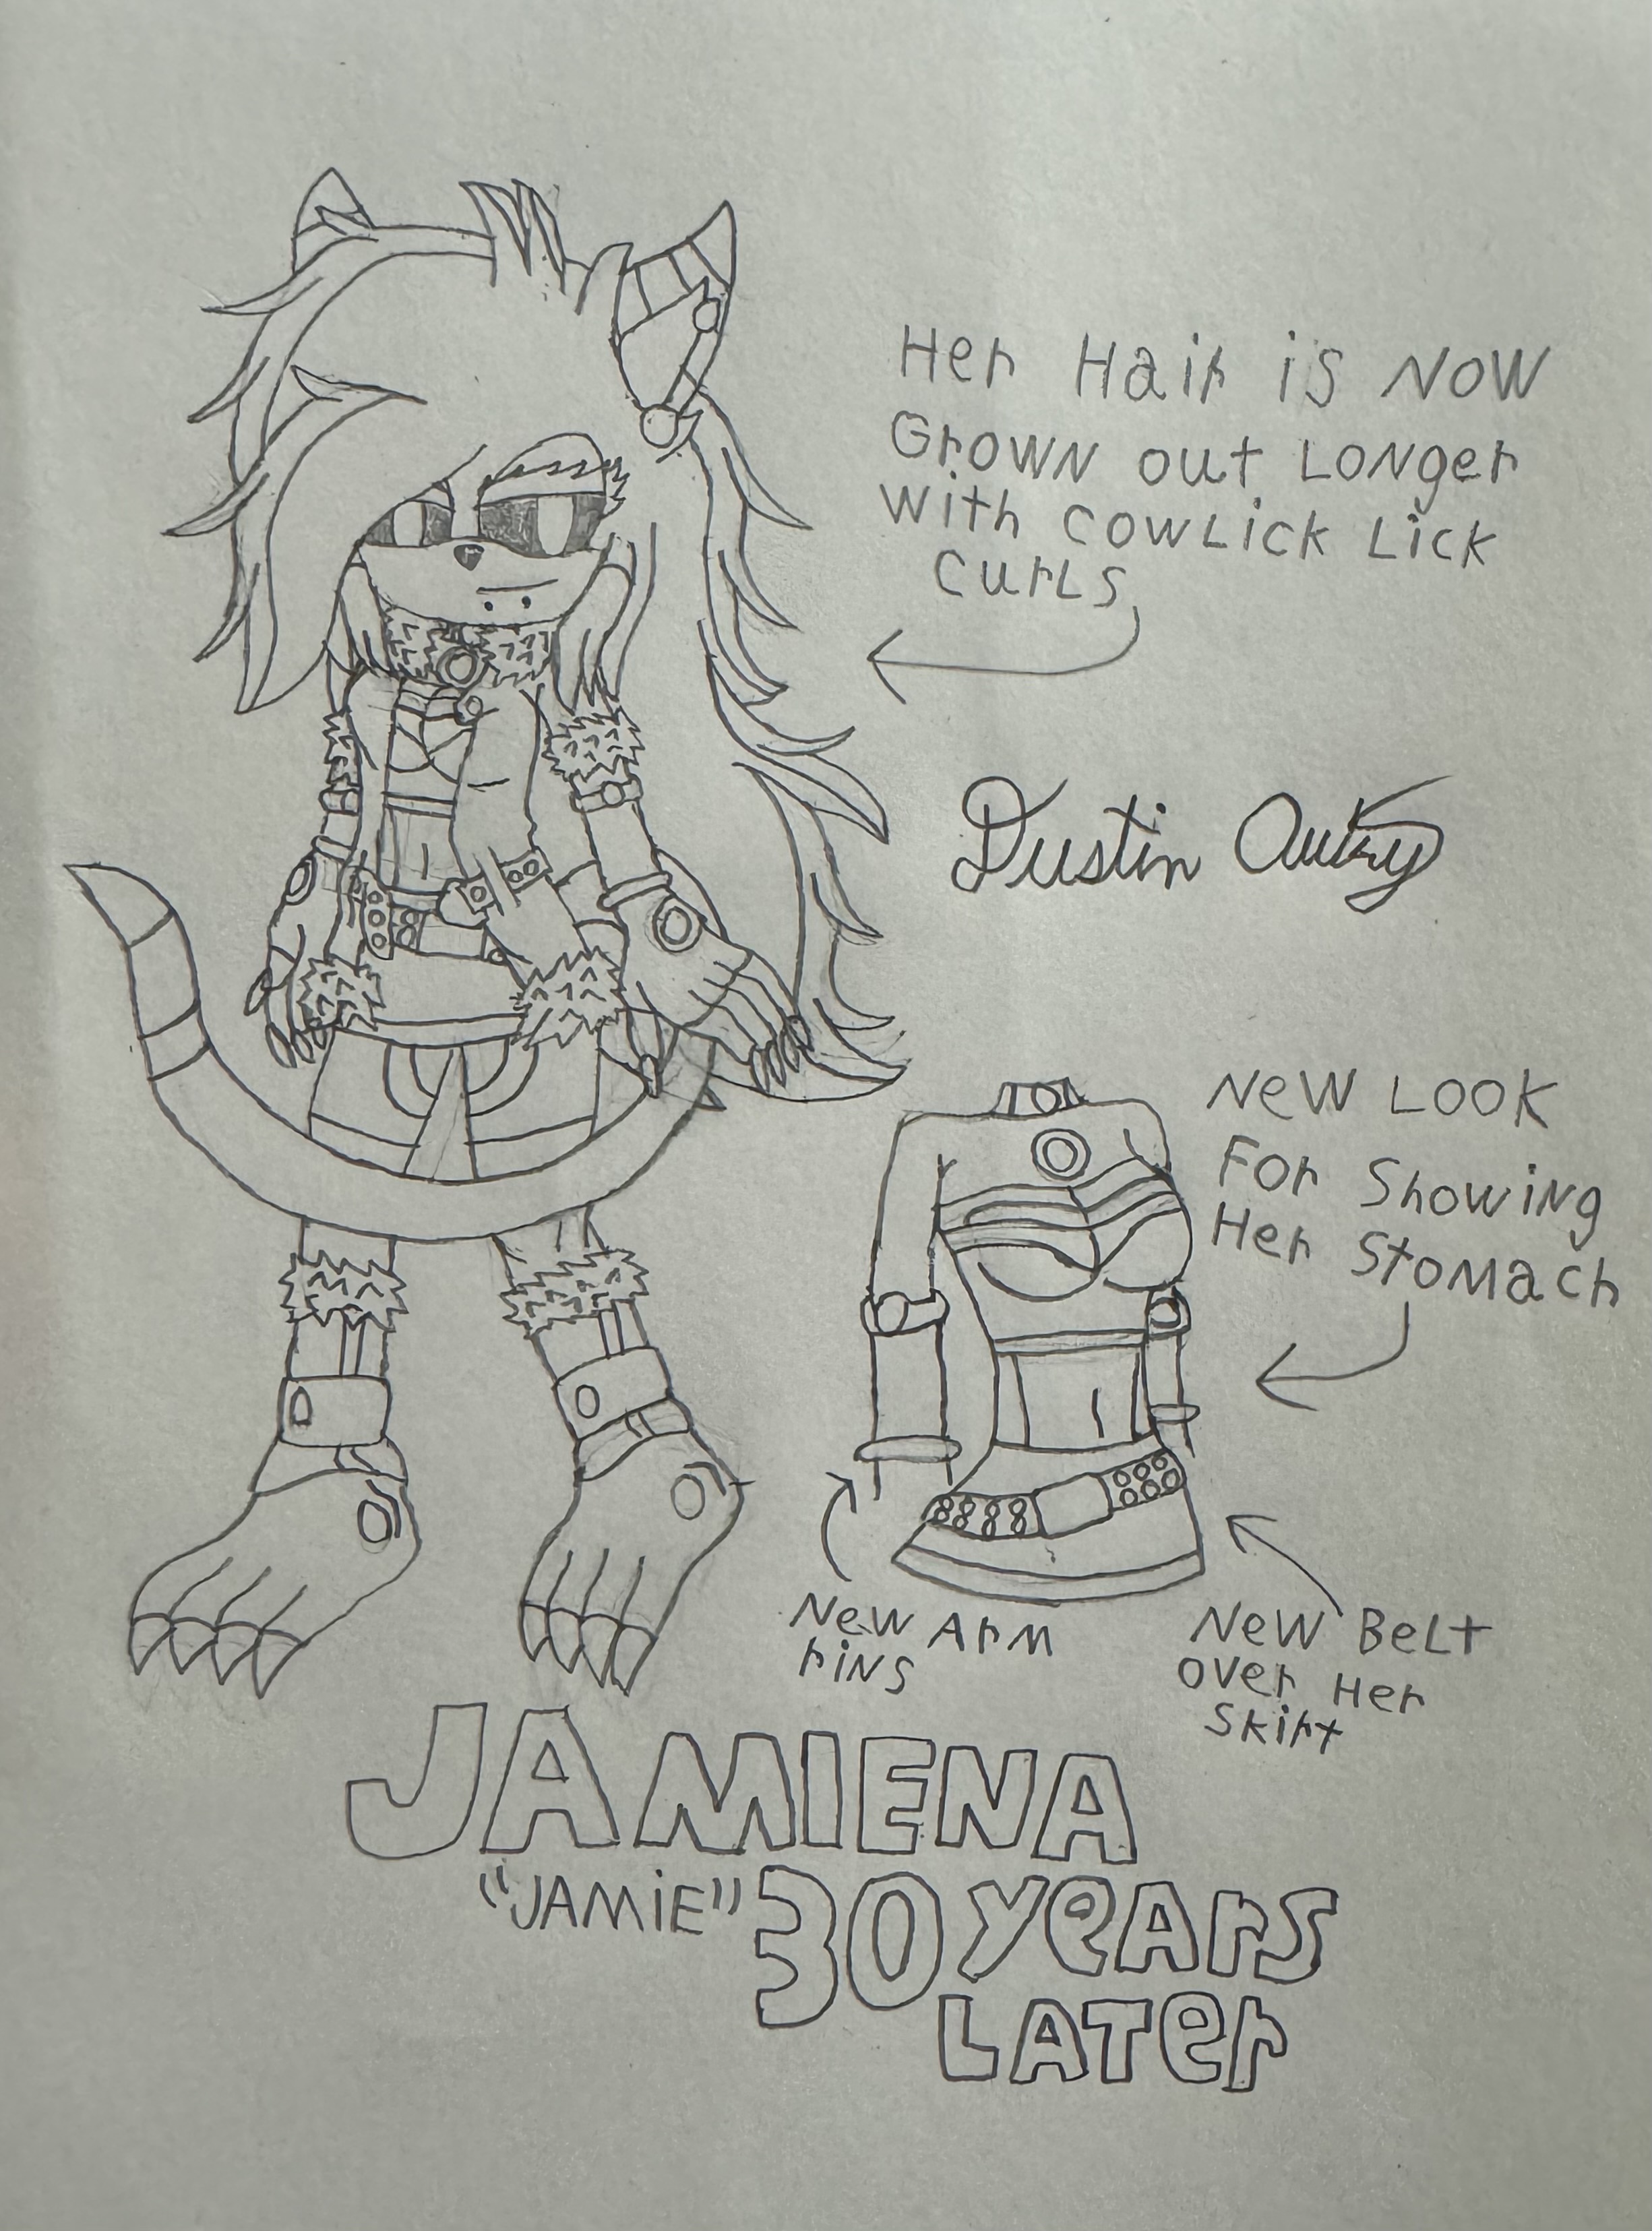 Her Hair is NOW
Grown out Longer
with cowLick Lick
curLs
Dustin Autry
New LOOK
For Showing
Her Stomach
New Arm
rins
New BeLt
over Her
Skirt
JAMIENA
"JAMiE"
30 yeArs
LATer